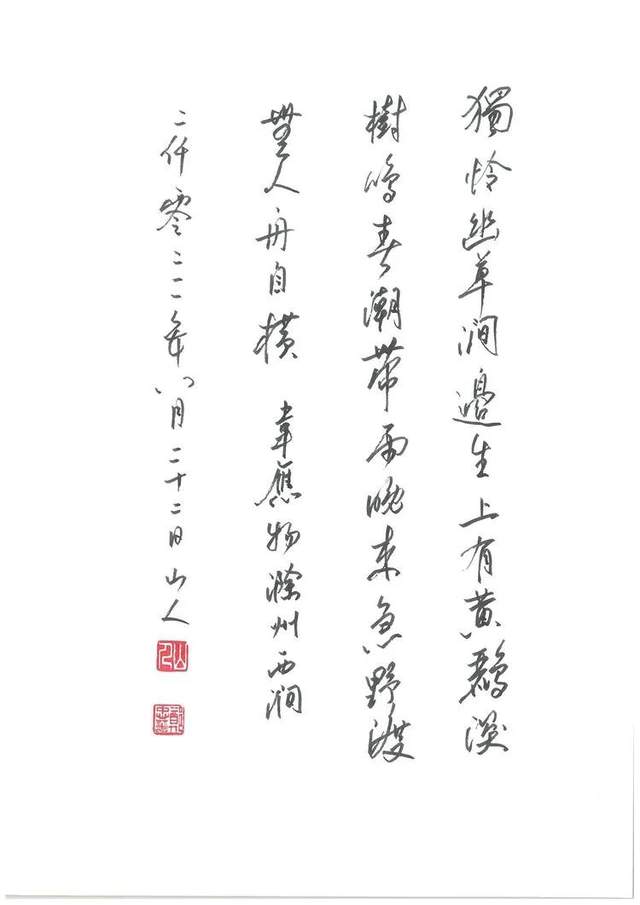 獨怜幽草澗邊生上有黄鸝深
樹鳴春潮帶雨晚来急野渡
無人舟自橫 韋應物滁州西澗
二仟零二二年八月二十二日山人
山人